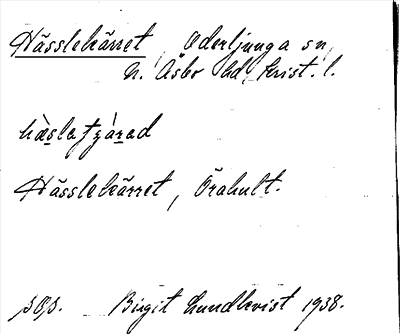 Hässlekärret, Oderljunga sn,
N. Åsbo hd, Krist. l.
hàslatzárad
Hässlekärret, Örahult.
Birgit Lundkvist 1938.